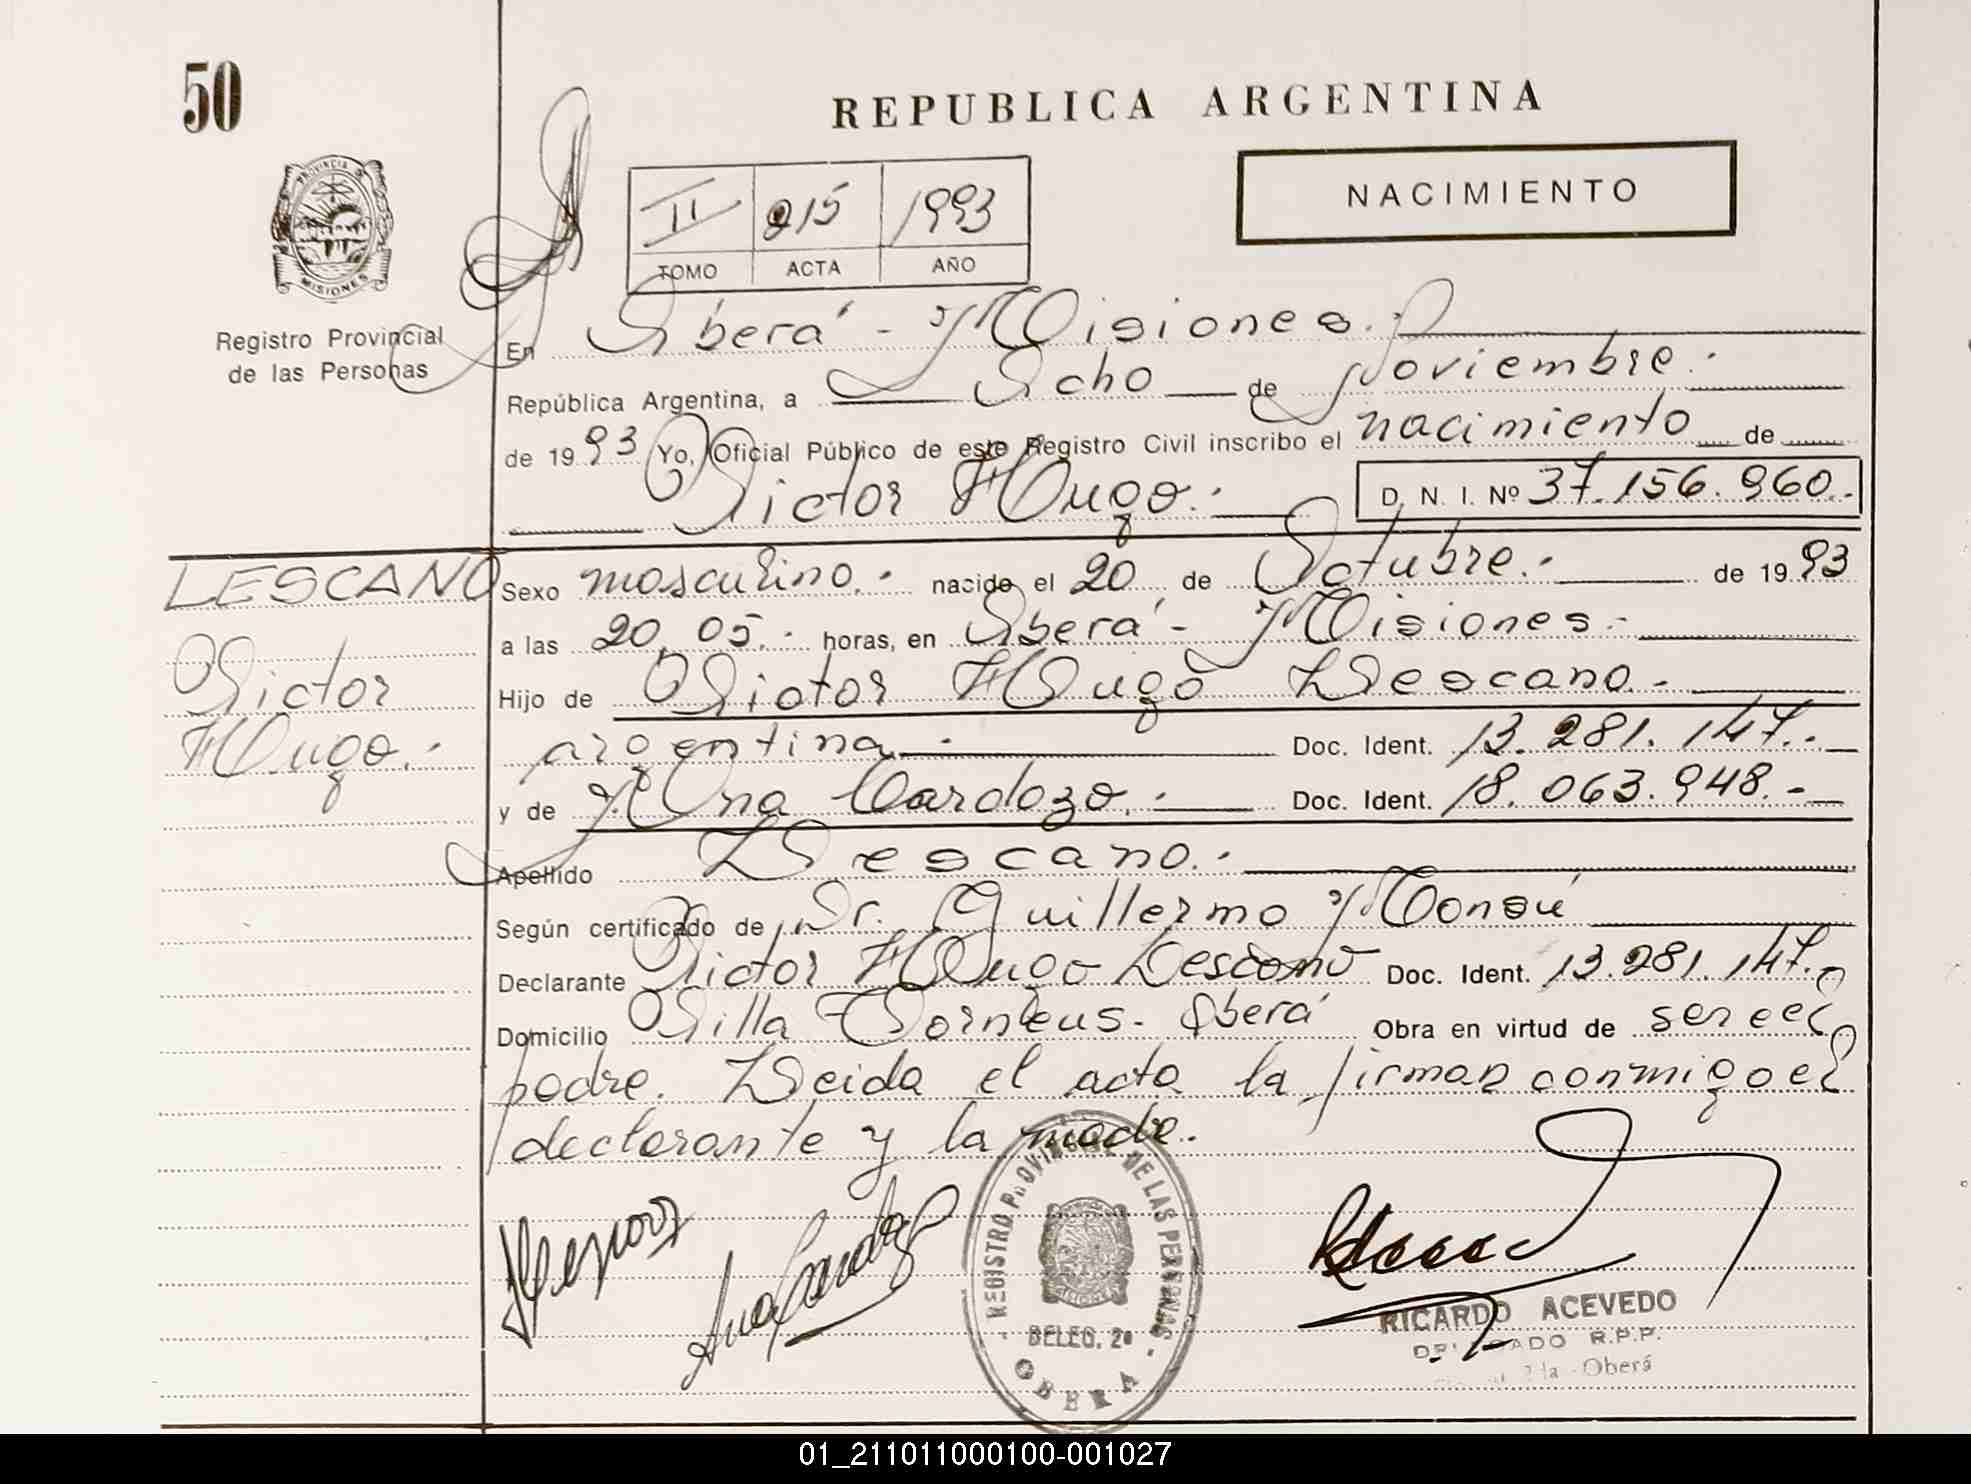 50
REPUBLICA ARGENTINA
PROVINCIA DE
MISIONES
Registro Provincial
de las Personas
II 215 1993
TOMO ACTA AÑO
NACIMIENTO
En Oberá - Misiones.
República Argentina, a Ocho de Noviembre.
de 1993 Yo, Oficial Público de este Registro Civil inscribo el nacimiento de
Victor Hugo. D. N. I. Nº 37.156.960.
LESCANO
Victor
Hugo.
Sexo masculino. nacido el 20 de Octubre. de 1993
a las 20,05. horas, en Oberá - Misiones.
Hijo de Victor Hugo Lescano.
argentina Doc. Ident. 13.281.147.
y de Ana Cardozo. Doc. Ident. 18.063.948.
Apellido Lescano.
Según certificado de Dr. Guillermo Monsú
Declarante Victor Hugo Lescano Doc. Ident. 13.281.147.
Domicilio Villa Torneus. Oberá Obra en virtud de ser el
padre. Leida el acta la firman conmigo el
declarante y la madre.
Ana Cardozo
REGISTRO PROVINCIAL DE LAS PERSONAS
MISIONES
DELEG. 2a
OBERA
RICARDO ACEVEDO
DELEGADO R.P.P.
2da - Oberá
01_211011000100-001027